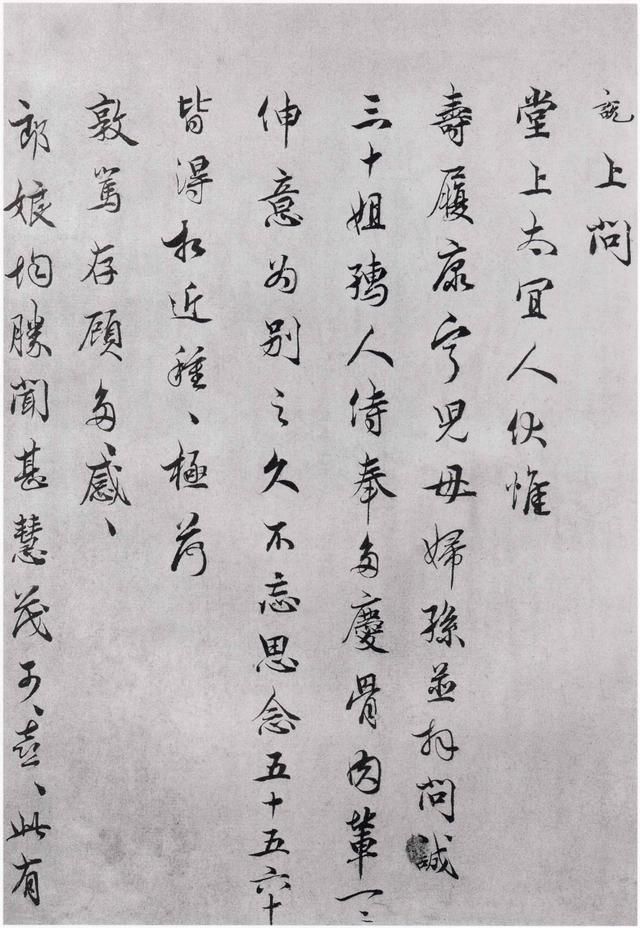 説上問
堂上太宜人伏惟
壽履康寧兒母婦孫並拜問誠
三十姐孺人侍奉多慶骨肉輩一二
伸意为别之久不忘思念五十五六十
皆得相近種、極荷
敦篤存顧多、感、
郎娘均勝聞甚慧茂可、喜、此有